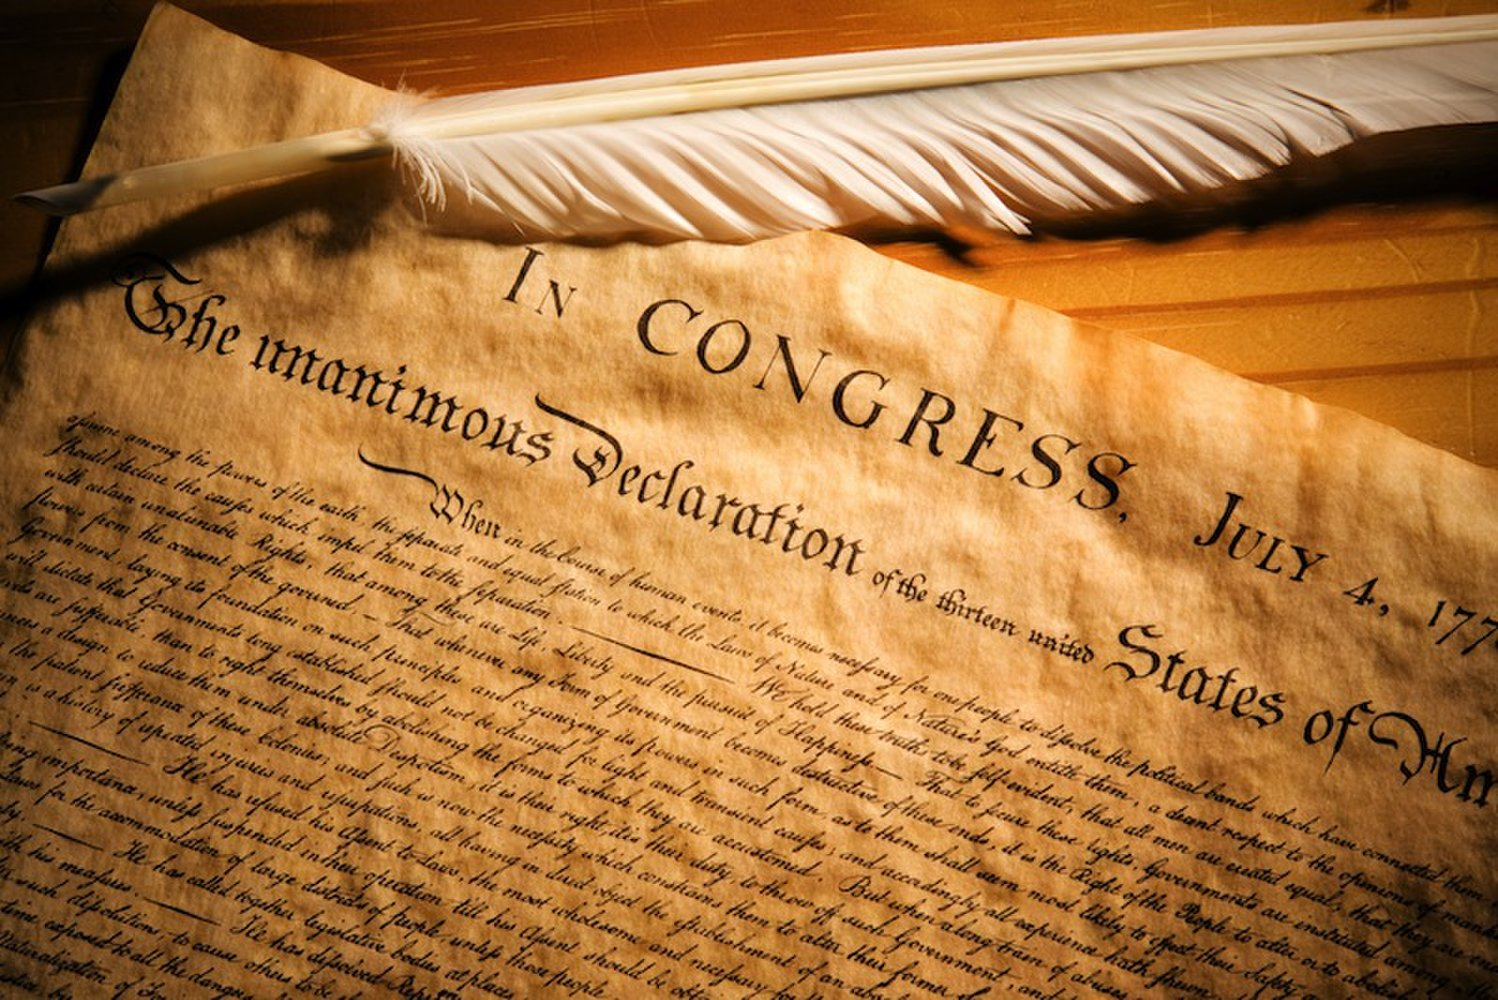 In CONGRESS, July 4, 177
The unanimous Declaration of the thirteen united States of Am
When in the Course of human events, it becomes necessary for one people to dissolve the political bands which have connected them
assume among the powers of the earth, the separate and equal station to which the Laws of Nature and of Nature's God entitle them, a decent respect to the opinions of mank
should declare the causes which impel them to the separation. — We hold these truths to be self-evident, that all men are created equal, that they are en
with certain unalienable Rights, that among these are Life, Liberty and the pursuit of Happiness — That to secure these rights, Governments are instituted among
powers from the consent of the governed, — That whenever any Form of Government becomes destructive of these ends, it is the Right of the People to alter or to abolish
Government, laying its foundation on such principles and organizing its powers in such form, as to them shall seem most likely to effect their Safety
will dictate that Governments long established should not be changed for light and transient causes; and accordingly all experience hath shewn
are sufferable, than to right themselves by abolishing the forms to which they are accustomed. But when a long train of abuses
a design to reduce them under absolute Despotism, it is their right, it is their duty, to throw off such Government, and
the patient sufferance of these Colonies; and such is now the necessity which constrains them to alter their former
is a history of repeated injuries and usurpations, all having in direct object the establishment of an abso
— He has refused his Assent to Laws, the most wholesome and necessary for
importance, unless suspended in their operation till his Assent should be obta
Laws for the accommodation of large districts of people, unless those people
— He has called together legislative bodies at places
his measures. — He has dissolved Repr
such dissolutions, to cause others to be
exposed to all the dangers
Naturalization of